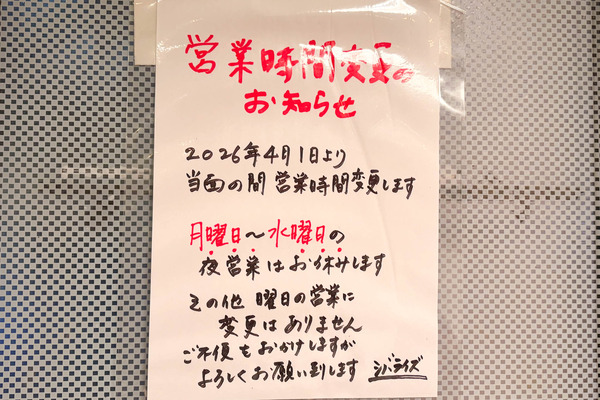 営業時間変更の
お知らせ
2026年4月1日より
当面の間 営業時間変更します
月曜日〜水曜日の
夜営業はお休みします
その他 曜日の営業に
変更はありません
ご不便をおかけしますが
よろしくお願い致します シバライズ